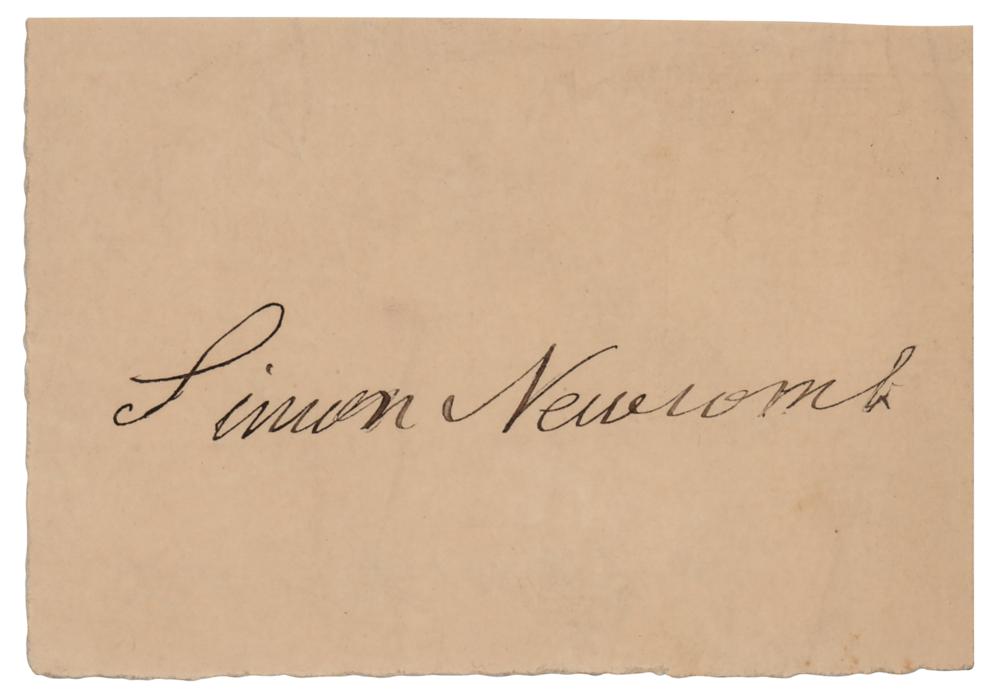 Simon Newcomb